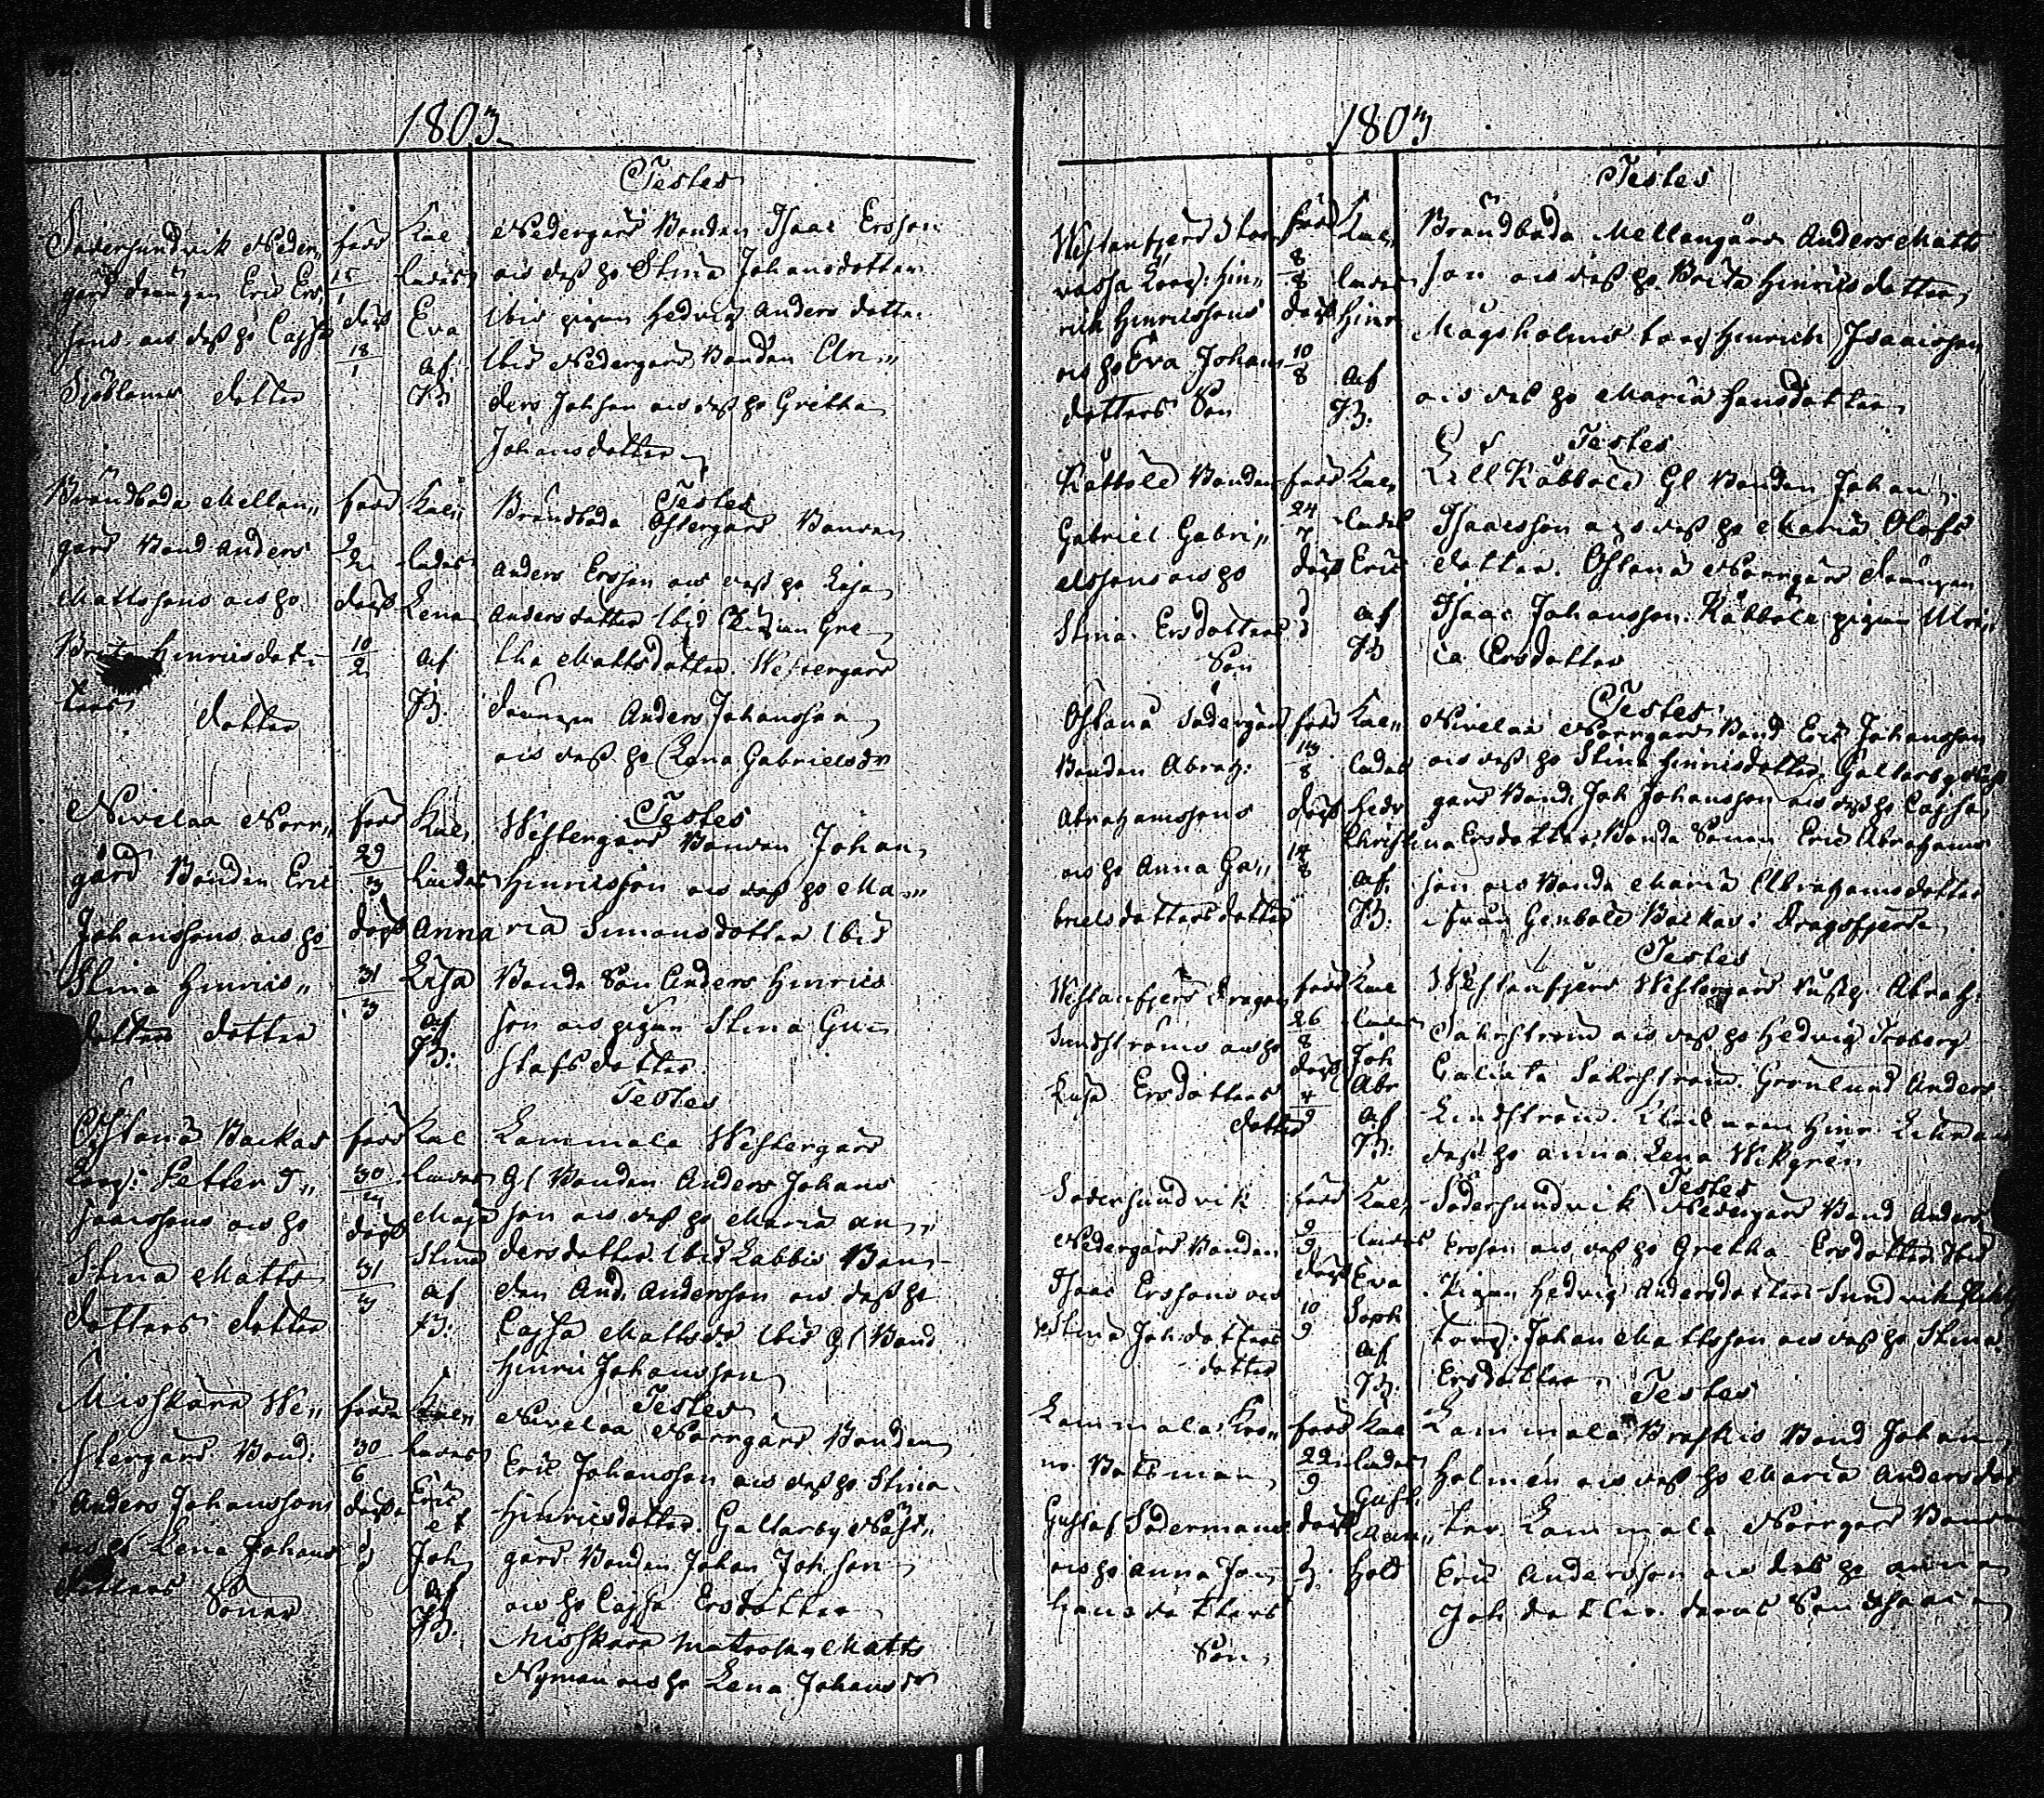 1803
Testes
Södersundvik Neder-
gård drängen Eric Ers-
sons och dess ho Cajsa
Sjöbloms dotter
född
15/1
döpt
18/1
Kal-
lades
Eva
af
B.
Nedergårds Bonden Isaac Ersson
och dess ho Stina Johansdotter
Ibid pigan Hedvig Anders dotter
Ibid Nedergårds Bonden An-
ders Johsson och dess ho Gretha
Johansdotter
Brändboda Mellan-
gård Bond Anders
Mattssons och ho
Brita Hinricsdot-
ters dotter
född
döpt
10/2
Kal-
lades
Lena
af
B.
Testes
Brändboda Östergårds Bonden
Anders Ersson och dess ho Lisa
Andersdotter Ibid pigan Gre-
tha Mattsdotter. Westergårds
drängen Anders Johansson
och dess ho Lena Gabrielsdr
Nivelax Norr-
gård Bonden Eric
Johanssons och ho
Stina Hinrics-
dotters dotter
född
29/3
döpt
31/3
Kal-
lades
Anna
Lisa
af
B:
Testes
Westergårds Bonden Johan
Hinricsson och dess ho Ma-
ria Simonsdotter Ibid
Bonde Son Anders Hinrics
son och pigan Stina Gu-
stafsdotter.
Östanå Backas
Torp: Petter I-
saacssons och ho
Stina Matts
dotters dotter
född
30/3
döpt
31/3
Kal
lades
Maja
Stina
af
B:
Testes
Lammala Westergård
Gl Bonden Anders Johans
son och dess ho Maria An-
dersdotter. Ibid Labbis Bon-
den And. Andersson och dess ho
Cajsa Mattsdr Ibid Gl Bond
Hinric Johansson
Misskärr We-
stergårds Bond:
Anders Johanssons
och ho Lena Johans
dotters Söner
född
30/6
döpte
Kal-
lades
Eric
et
Joh
af
B.
Testes
Nivelax Norrgårds Bonden
Eric Johansson och dess ho Stina
Hinricsdotter. Galtarby Näst-
gårds Bonden Johan Johsson
och ho Cajsa Ersdotter
Misskärr Matrosen Matts
Nyman och ho Lena Johansdr
1803
Testes
Westanfjerd Stor
Hin-
rich Hinricssons
och ho Eva Johans
dotters Son
född
8/8
döpt
10/8
Kal-
lades
Hinr
af
B.
Brändboda Mellangårds Anders Matts
son och dess ho Brita Hinricsdotter
Mågsholms torp Hinrich Isaacsson
och dess ho Maria Hansdotter
Kåbböle Bonden
Gabriel Gabri-
elssons och ho
Stina Ersdotters
Son
född
24/7
döpt
Kal-
lades
Eric
af
B
Testes
Lill Kåbböle Gl Bonden Johan
Isaacsson och dess ho Maria Olofs
dotter. Östanå Norrgårds drängen
Isaac Johansson. Kåbböle pigan Ulri-
ca Ersdotter
Östanå Södergårds
Bonden Abrah:
Abrahamssons
och ho Anna Ga-
brielsdotters dotter
född
13/8
döpt
14/8
Kal-
lades
Hedv
Christina
af
B.
Testes
Nivelax Norrgårds Bond Eric Johansson
och dess ho Stina Hinricsdotter. Galtarby Näst
gårds Bond. Joh Johansson och dess ho Cajsa
Ersdotter, Bonde Sonen Eric Abrahams
son och Bonde Maria Abrahamsdotter
ifrån Genböle Backas i Dragsfjerd
Westanfjerd dragon
Sundströms och ho
Lisa Ersdotters
dotter
född
26/8
döpt
4/9
Kal
lades
Joh
Abr
af
B.
Testes
Westanfjerd Westergårds Abrah.
och dess ho Hedvig
Grönlund Anders
Lindström. Hinr. Lihr och
dess ho Anna Lena Wikgrén
Södersundvik
Nedergårds Bonden
Isaac Erssons och
ho Stina Joh dotters
dotter
född
9/9
döpt
10/9
Kal-
lades
Eva
Soph
af
B.
Testes
Södersundvik Nedergårds Bond Anders
Ersson och dess ho Gretha Ersdotter Ibid
Pigan Hedvig Andersdotter Sundvik
torp: Johan Mattsson och dess ho Stina
Ersdotter
Lammala Kro-
no Båtsman
Gustaf Södermans
och ho Anna Jo-
hansdotters
Son
född
22/9
döpt
Kal
lades
Gust.
Man-
hold
Testes
Lammala Broskis Bond Johan
Holmén och dess ho Maria Andersdot
ter. Lammala Norrgårds Bonden
Eric Andersson och dess ho Anna
Joh dotter. deras Son Isaac